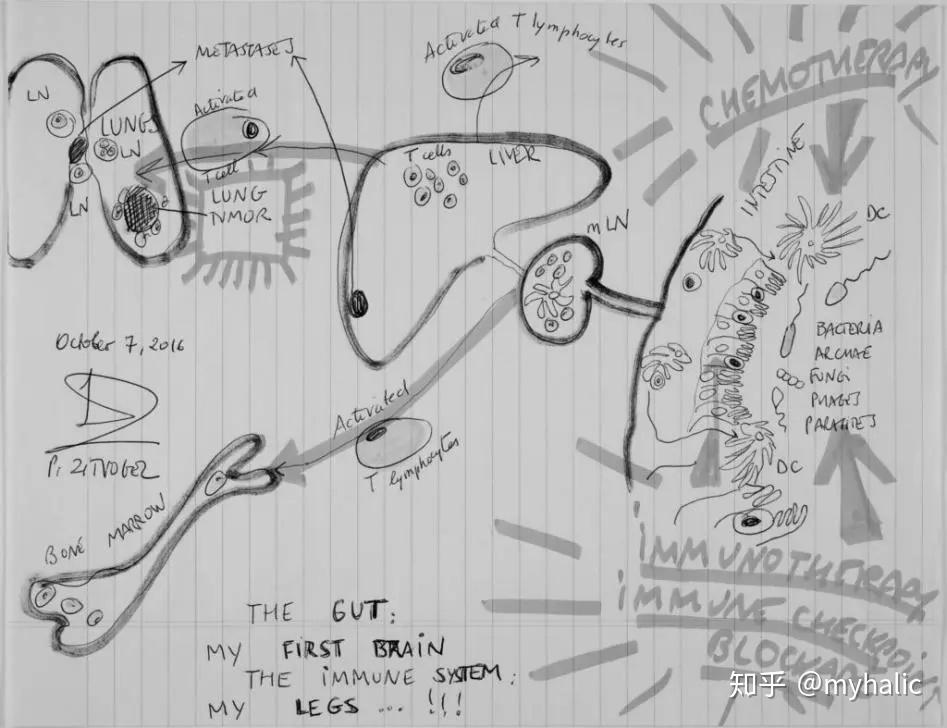 Activated T lymphocytes
METASTASES
CHEMOTHERAPY
LN
LUNGS
LN
LN
Activated
T cell
LUNG
TUMOR
T cells
LIVER
mLN
INTESTINE
DC
BACTERIA
ARCHAE
FUNGI
PHAGES
PARASITES
DC
October 7, 2016
Pr ZITVOGEL
Activated
T lymphocytes
BONE MARROW
IMMUNOTHERAPY
IMMUNE CHECKPOINT
BLOCKADE
THE GUT:
MY FIRST BRAIN
THE IMMUNE SYSTEM:
MY LEGS ... !!!
知乎 @myhalic